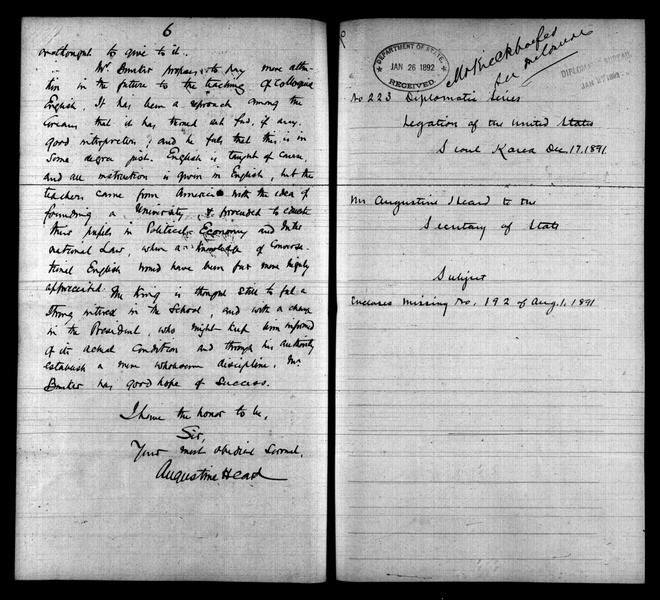 6
or thought to give to it.
Mr. Bunker proposes to pay more atten-
tion in the future to the teaching of Colloquial
English. It has been a reproach among the
Coreans that it has turned out few, if any,
good interpreters; and he feels that this is in
some degree just. English is taught of course,
and all instruction is given in English, but the
teachers came from America with the idea of
founding a University, & proceeded to educate
their pupils in Political Economy and Inter-
national Law, when a knowledge of Conversa-
tional English would have been far more highly
appreciated. The King is thought still to feel a
strong interest in the School, and with a change
in the President, who might keep him informed
of its actual Condition and through his authority
establish a more wholesome discipline, Mr.
Bunker has good hope of Success.
I have the honor to be,
Sir,
Your most obedient Servant,
Augustine Heard
DEPARTMENT OF STATE,
JAN 26 1892
RECEIVED
DIPLOMATIC BUREAU
JAN 27 1892
No 223 Diplomatic Series
Legation of the United States
Seoul Korea Dec. 17. 1891
Mr Augustine Heard to the
Secretary of State
Subject
Encloses missing No. 192 of Aug. 1. 1891